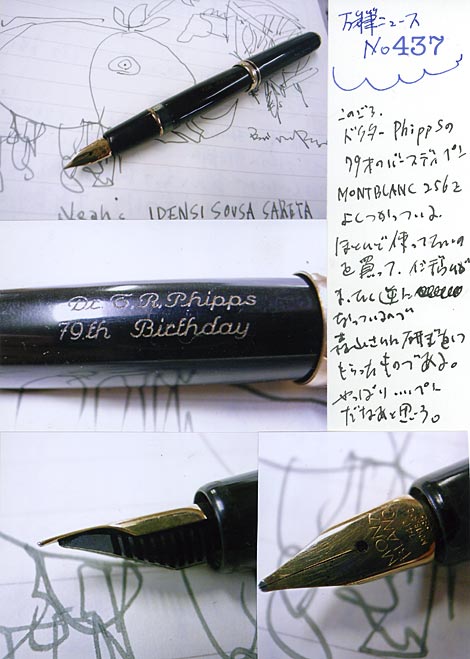 万年筆ニュース
No 437
このごろ、
ドクター Phippsの
79才のバースディペン
MONTBLANC 256を
よくつかっている。
ほとんど使ってないの
を買って、
なっているので
もらったものである。
やっぱり‥‥ペン
だなあと思う。
Yeah! IDENSI SOUSA SARETA
Dr. C. R. Phipps
79th Birthday
MONT
BLANC